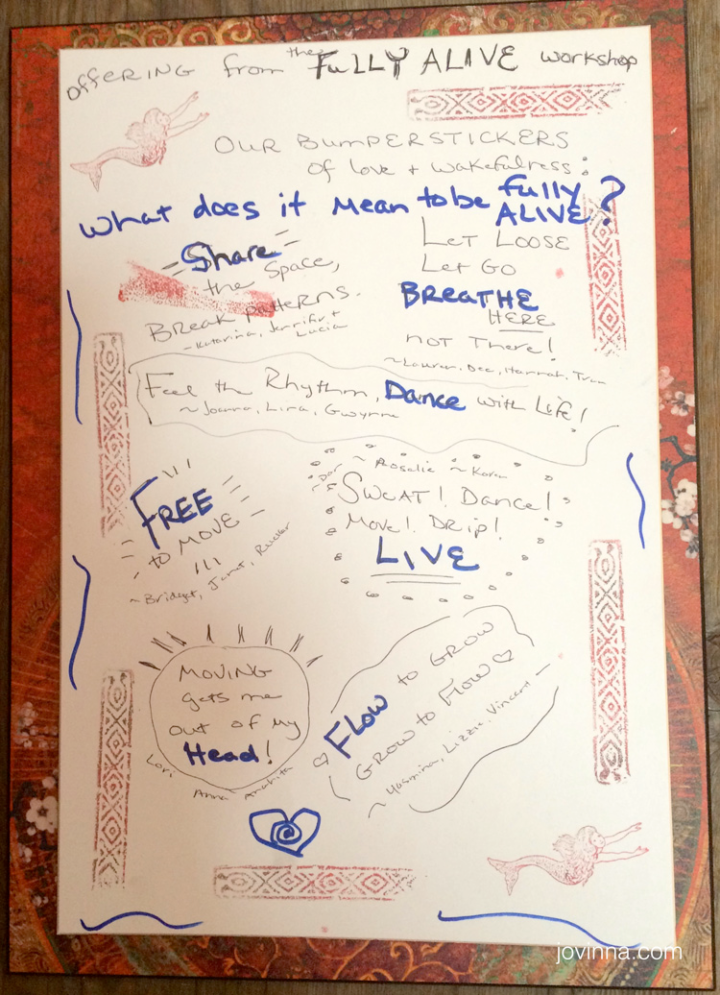 OFFERING from the FULLY ALIVE workshop
OUR BUMPERSTICKERS
of love + wakefulness:
What does it Mean to be fully ALIVE?
Share
the Space,
Break patterns.
~ Katarina, Jennifer + Lucia
LET LOOSE
Let GO
BREATHE
HERE
not There!
~Lauren, Dee, Hannah,
Feel the Rhythm, Dance with Life!
~ Joanna, Lina, Gwynne
FREE
to MOVE
~ Bridget, Janet,
~ Rosalie ~ Karen
SWEAT! Dance!
Move! DRIP!
LIVE
MOVING
gets me
out of my
Head!
Lori Anna Anahita
FLOW to GROW
GROW to FLOW
~ Yasmina, Lizzie, Vincent ~
jovinna.com